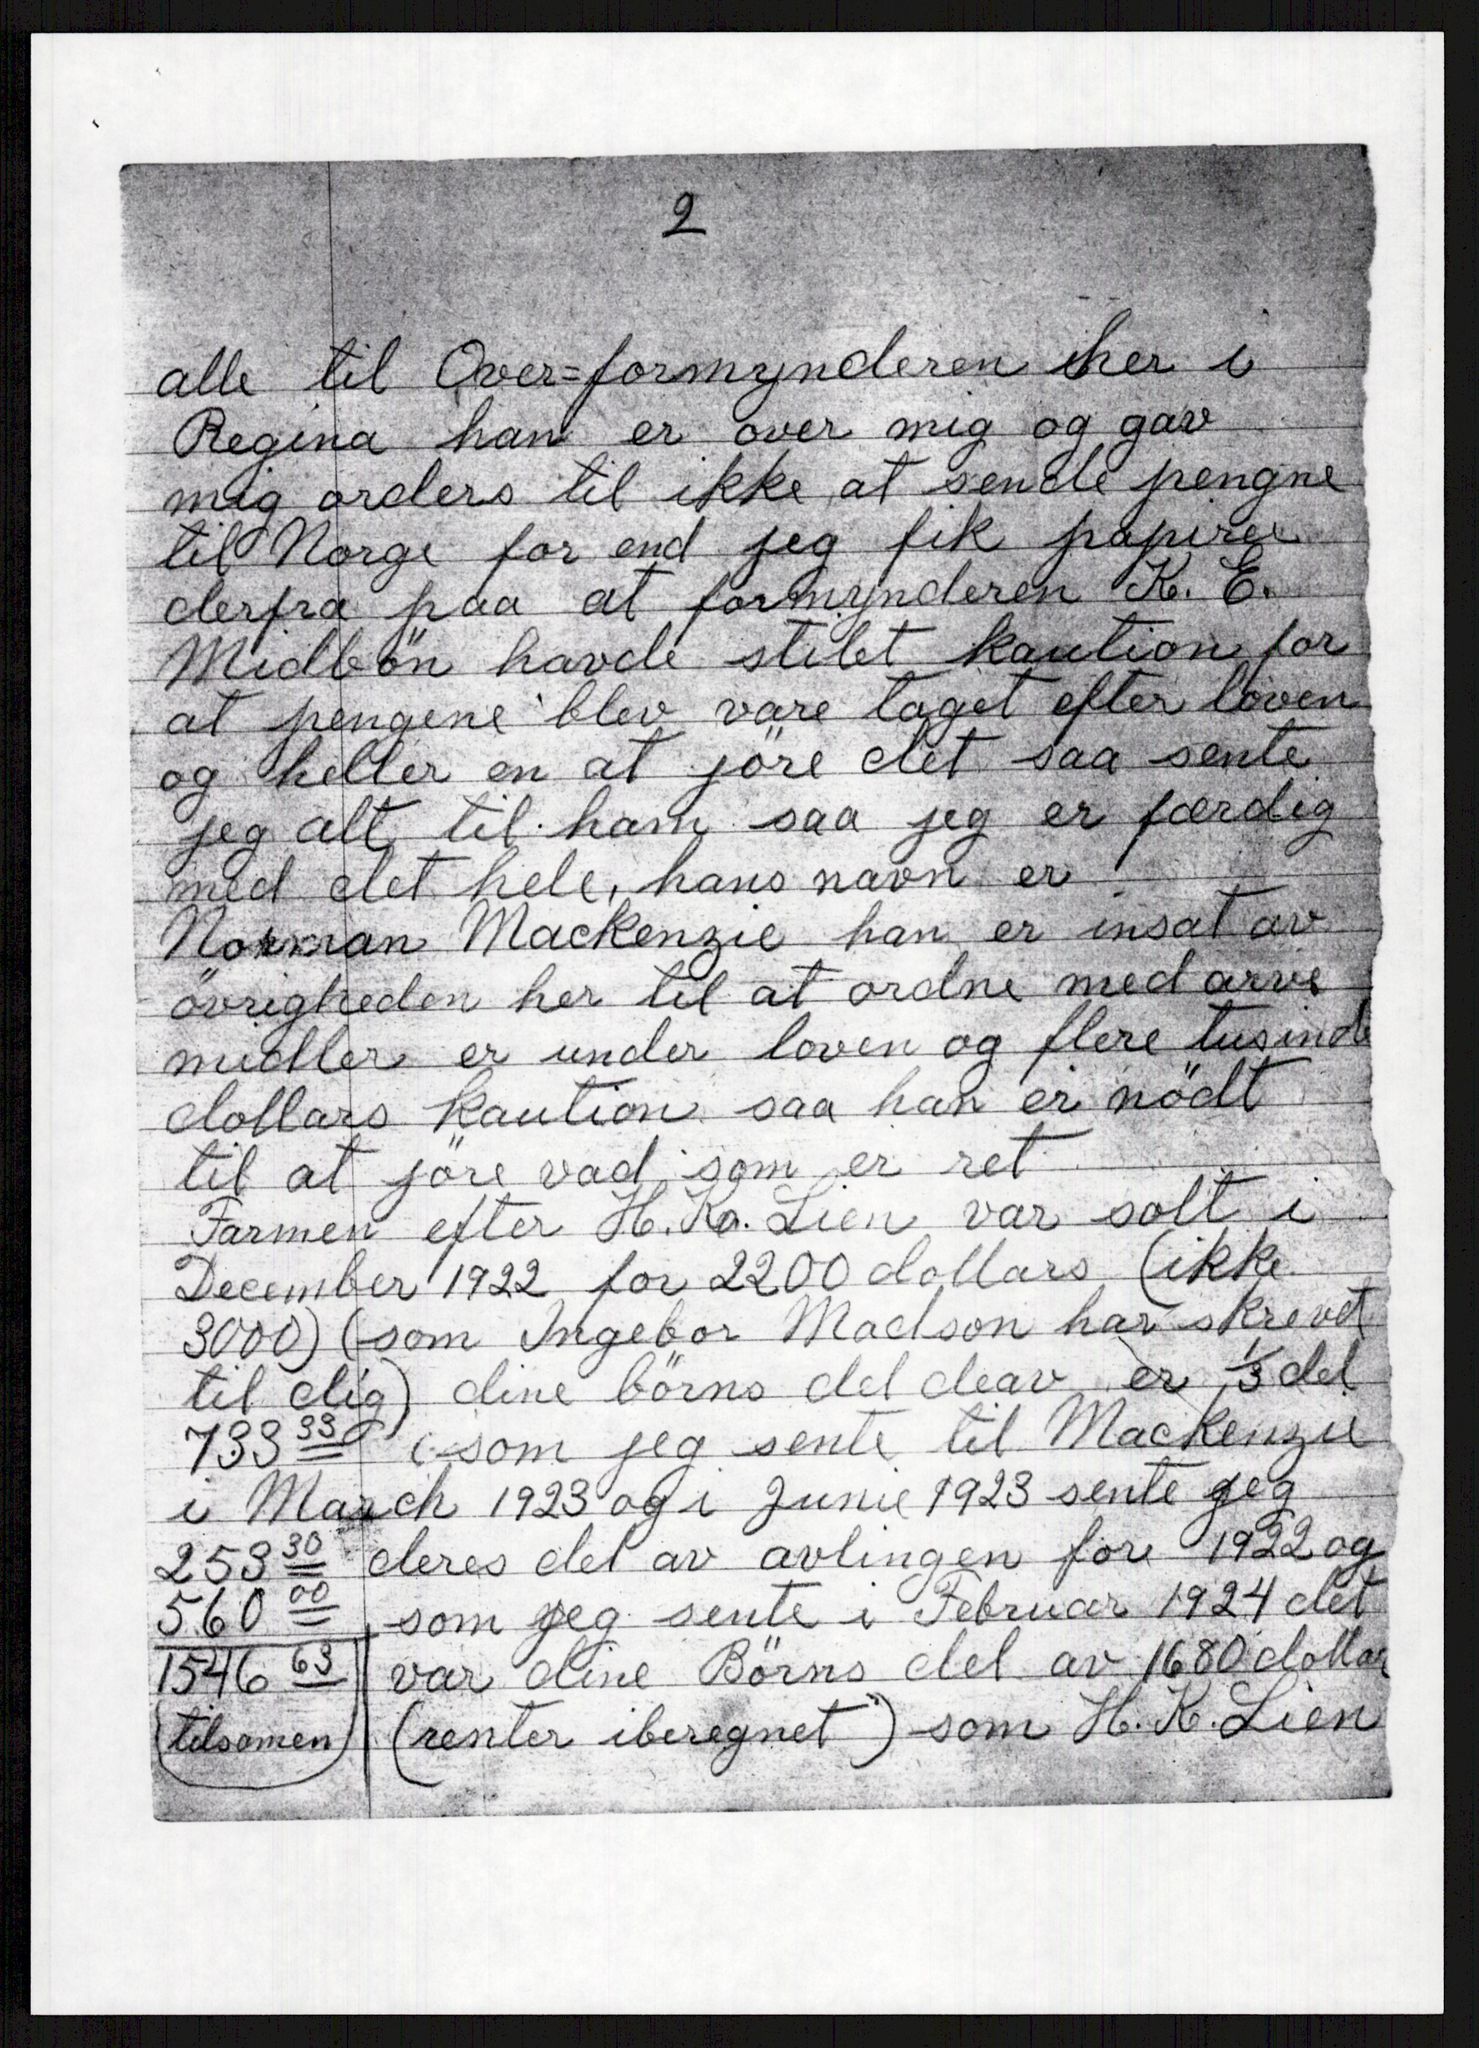 2
alle til Over=formynderen her i
Regina han er over mig og gav
mig orders til ikke at sende pengne
til Norge for end jeg fik papirer
derfra paa at formynderen K. E.
Midbön havde stilet kaution for
at pengene blev vare taget efter loven
og heller en at jöre det saa sente
jeg alt til ham saa jeg er færdig
med det hele, hans navn er
Norman Mackenzie han er insat av
övrigheden her til at ordne med arve
midler er under loven og flere tusinde
dollars kaution saa han er nödt
til at jöre vad som er ret
Farmen efter H. K. Lien var solt i
December 1922 for 2200 dollars (ikke
3000) (som Ingebor Madson har skrevet
til dig) dine börns del deav er 1/3 del
733 33 (som jeg sente til Mackenzie
i March 1923 og i Junie 1923 sente jeg
253 30 deres del av avlingen for 1922 og
560 00 som jeg sente i Februar 1924 det
1546 63 var dine Börns del av 1680 dollar
(tilsamen) (renter iberegnet) som H. K. Lien